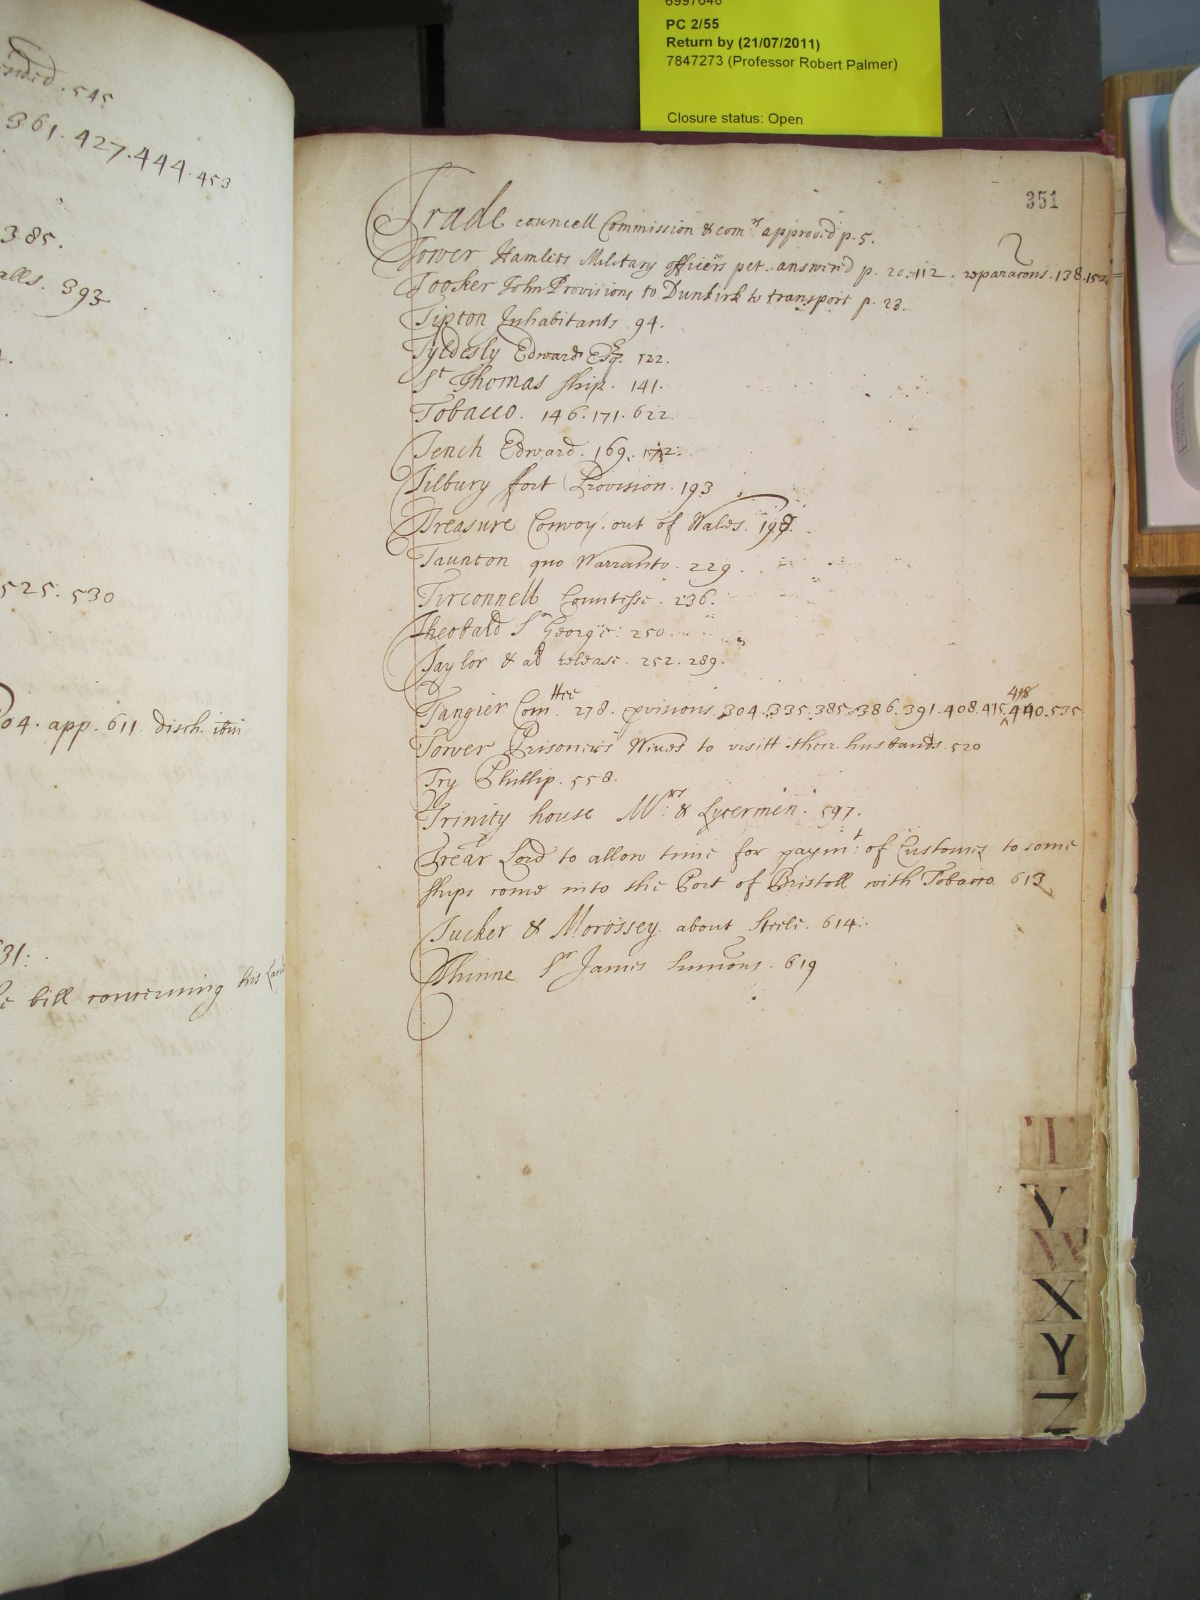 6997646
PC 2/55
Return by (21/07/2011)
7847273 (Professor Robert Palmer)
Closure status: Open
545
361. 427. 444. 453
385.
393
525. 530
app. 611 disch. ibm
31:
bill concerning his
351
Trade councell Commission & comrs approved p. 5.
Tower Hamlets Military officers pet. answered p. 20. 112. reparacons. 138. 152
Tooker John Provisions to Dunkirk to transport p. 23.
Tipton Inhabitants 94.
Tyldesly Edward Esqr. 122.
St Thomas ship. 141.
Tobacco. 146. 171. 622
Tench Edward. 169. 172.
Tilbury fort Provision. 193
Treasure Convoy out of Wales. 198.
Taunton quo Warranto. 229.
Tirconnell Countesse. 236.
Theobald Sr George: 250.
Taylor & al release. 252. 289.
Tangier Comttee 278. pvisions 304. 335. 385. 386. 391. 408. 415. 418 440. 535
Tower Prisoners Wives to visitt their husbands. 520
Try Phillip. 558.
Trinity house Mrs: & 597.
Trear Lord to allow time for paymt: of Customes to some
ships come into the Port of Bristoll with Tobacco 613
Tucker & Morossey about Steele. 614.
Thinne Sr James Sumons. 619
T
V
W
X
Y
Z